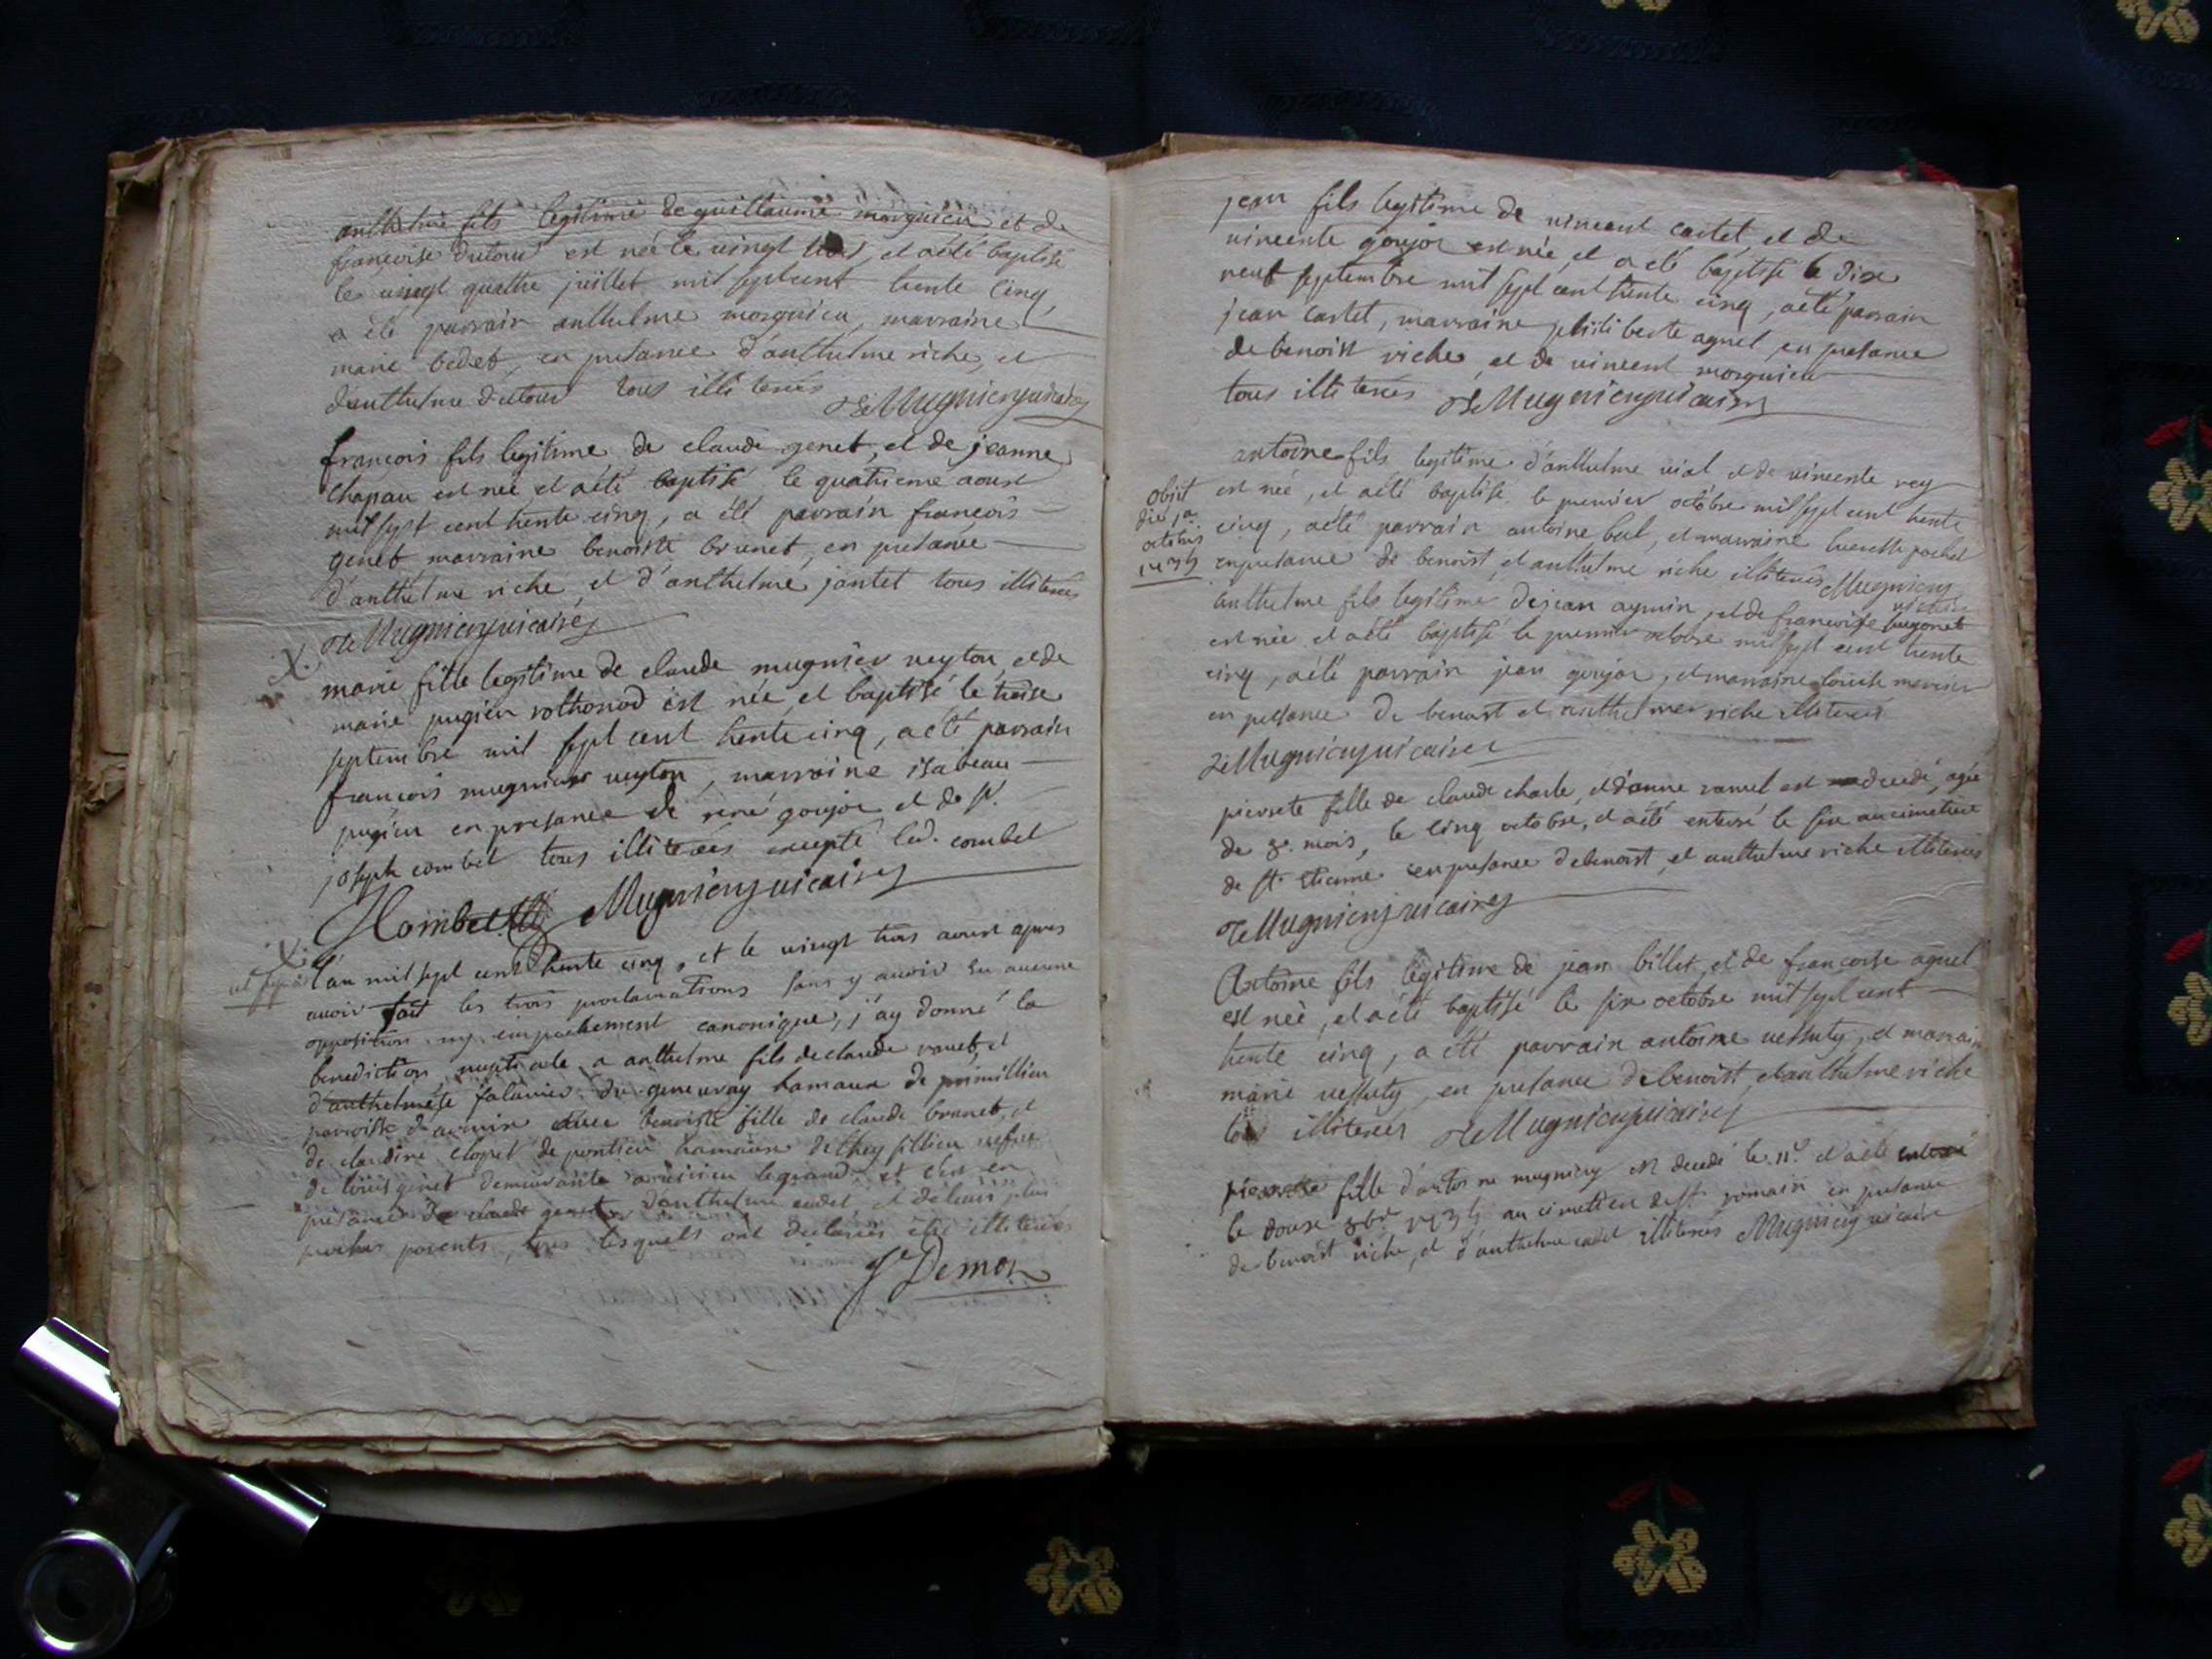 anthelme fils legitime de guillaume morguieu et de
francoise dutour est née le vingt trois, et a été baptisé
le vingt quattre juillet mil sept cent trente cinq,
a été parrain anthelme morguieu, marraine
marie bedet, en presance d'anthelme riche, et
d'anthelme dutour tous illiterés Mugnier vicaire
francois fils legitime de claude genet, et de jeanne
Chapau est née et a été baptisé le quatrieme aoust
mil sept cent trente cinq, a été parrain francois
genet marraine benoiste brunet, en presance
d'anthelme riche et d'anthelme jantet tous illiterés
Mugnier vicaire
X.
marie fille legitime de claude mugnier neyton, et de
marie pugieu rothonod est née et baptisé le treise
septembre mil sept cent trente cinq, a été parrain
francois mugnier neyton, marraine isabeau
pugieu en presance de rené goujor et de sr.
joseph combet tous illiterés excepté led. combet
Combet Mugnier vicaire
X.
l'an mil sept cent trente cinq, et le vingt trois aoust apres
avoir fait les trois proclamations sans y avoir eu aucune
opposition ny empechement canonique, j'ay donné la
benediction nuptiale a anthelme fils de claude ravet, et
d'anthelmete falavier du genevray hamaux de primillieu
parroisse d'armix avec benoiste fille de claude brunet, et
de claudine clopet de pontieu hamaux de cheysillieu vefve
de louis genet demeurante a virieu le grand et c'est en
presance de claude genet d'anthelme cadet, et de leurs plus
proches parents, tous lesquels ont declarés etre illiterés
Demor
jean fils legitime de vincent cartet, et de
vincente goujor est née, et a été baptisé le dix
neuf septembre mil sept cent trente cinq, a été parrain
jean cartet, marraine philiberte agnel en presance
de benoist riche, et de vincent morguieu
tous illiterés Mugnier vicaire
antoine fils legitime d'anthelme vial et de vincente rey
est née, et a été baptisé le premier octobre mil sept cent trente
cinq, a été parrain antoine bal, et marraine lucresse pochet
en presance de benoist, et anthelme riche illiterés Mugnier
vicaire
obiit
die
octobris
1735
anthelme fils legitime de jean aymin, et de francoise hugonet
est née et a été baptisé le premier octobre mil sept cent trente
cinq, a été parrain jean goujor, et marraine louise mercier
en presance de benoist et anthelme riche illiterés
Mugnier vicaire
pierrete fille de claude charle, et d'anne ramel est decedé, agée
de 3. mois, le cinq octobre, et a été enterré le six au cimetiere
de st. etienne en presance de benoist, et anthelme riche illiterés
Mugnier vicaire
Antoine fils legitime de jean billet, et de francoise agnel
est née, et a été baptisé le six octobre mil sept cent
trente cinq, a été parrain antoine vessuty, et marraine
marie vessuty, en presance de benoist et anthelme riche
tous illiterés Mugnier vicaire
pierrette fille d'antoine mugnier est decedé le 11e. et a été enterré
le douse 8bre 1735 au cimetiere de st. romain en presance
de benoist riche, et d'anthelme cadet illiterés Mugnier vicaire